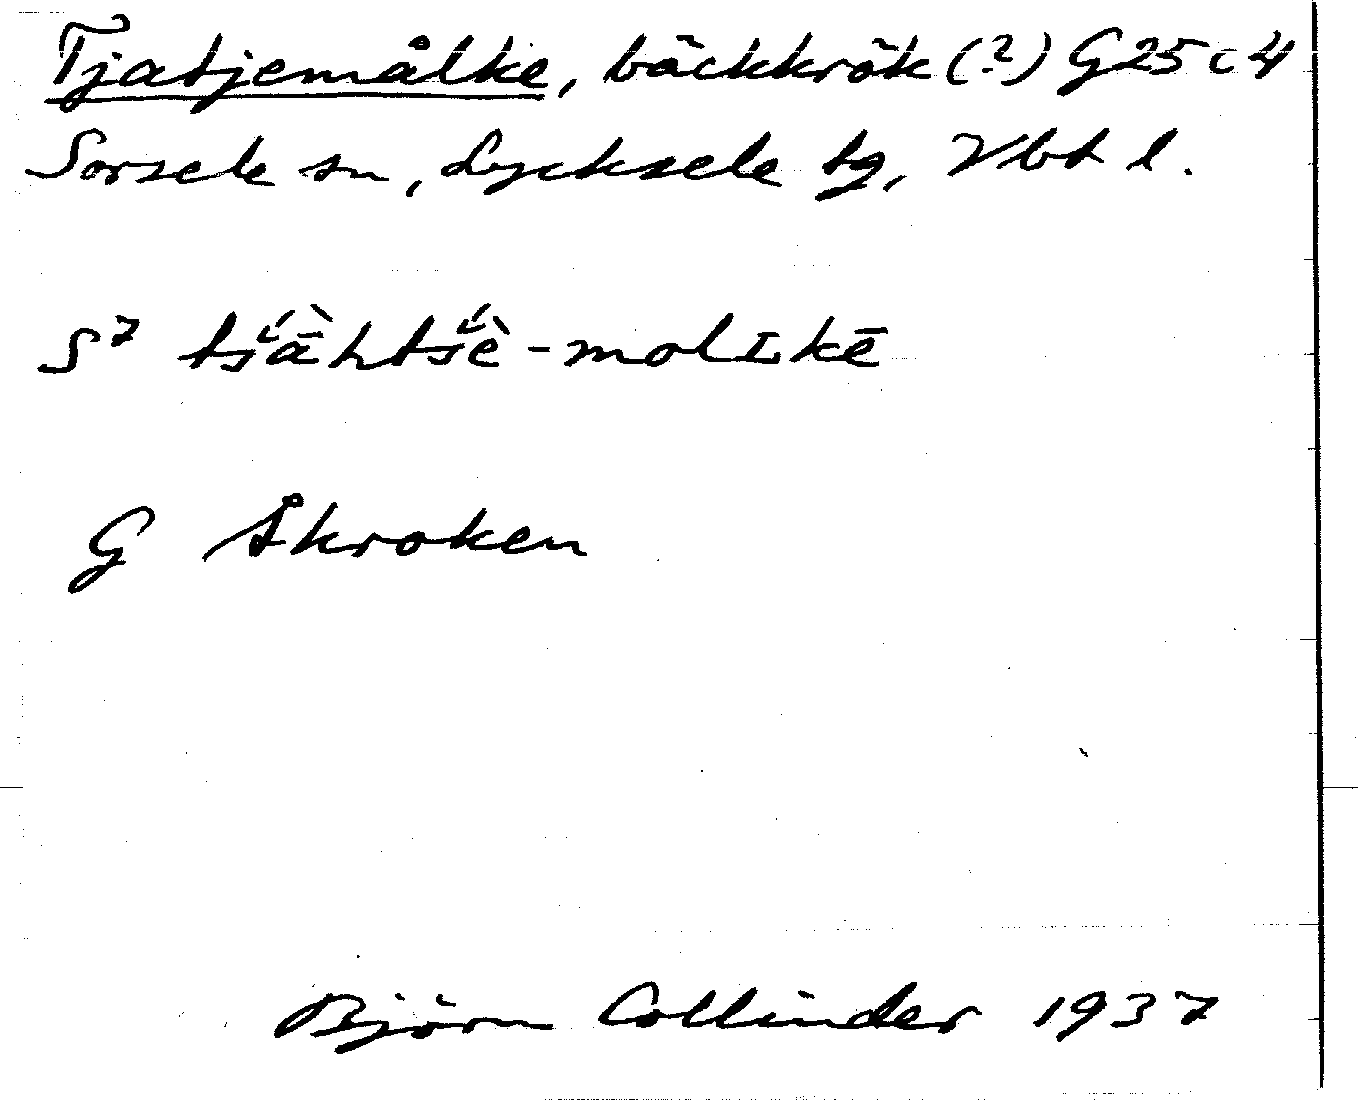 Tjatjemålke, bäckkrök (?) G25 c 4
Sorsele sn, Lycksele tg, Vbt l.
S7 tś̀āhtśè-molɪkē
G Åkroken
Björn Collinder 1937